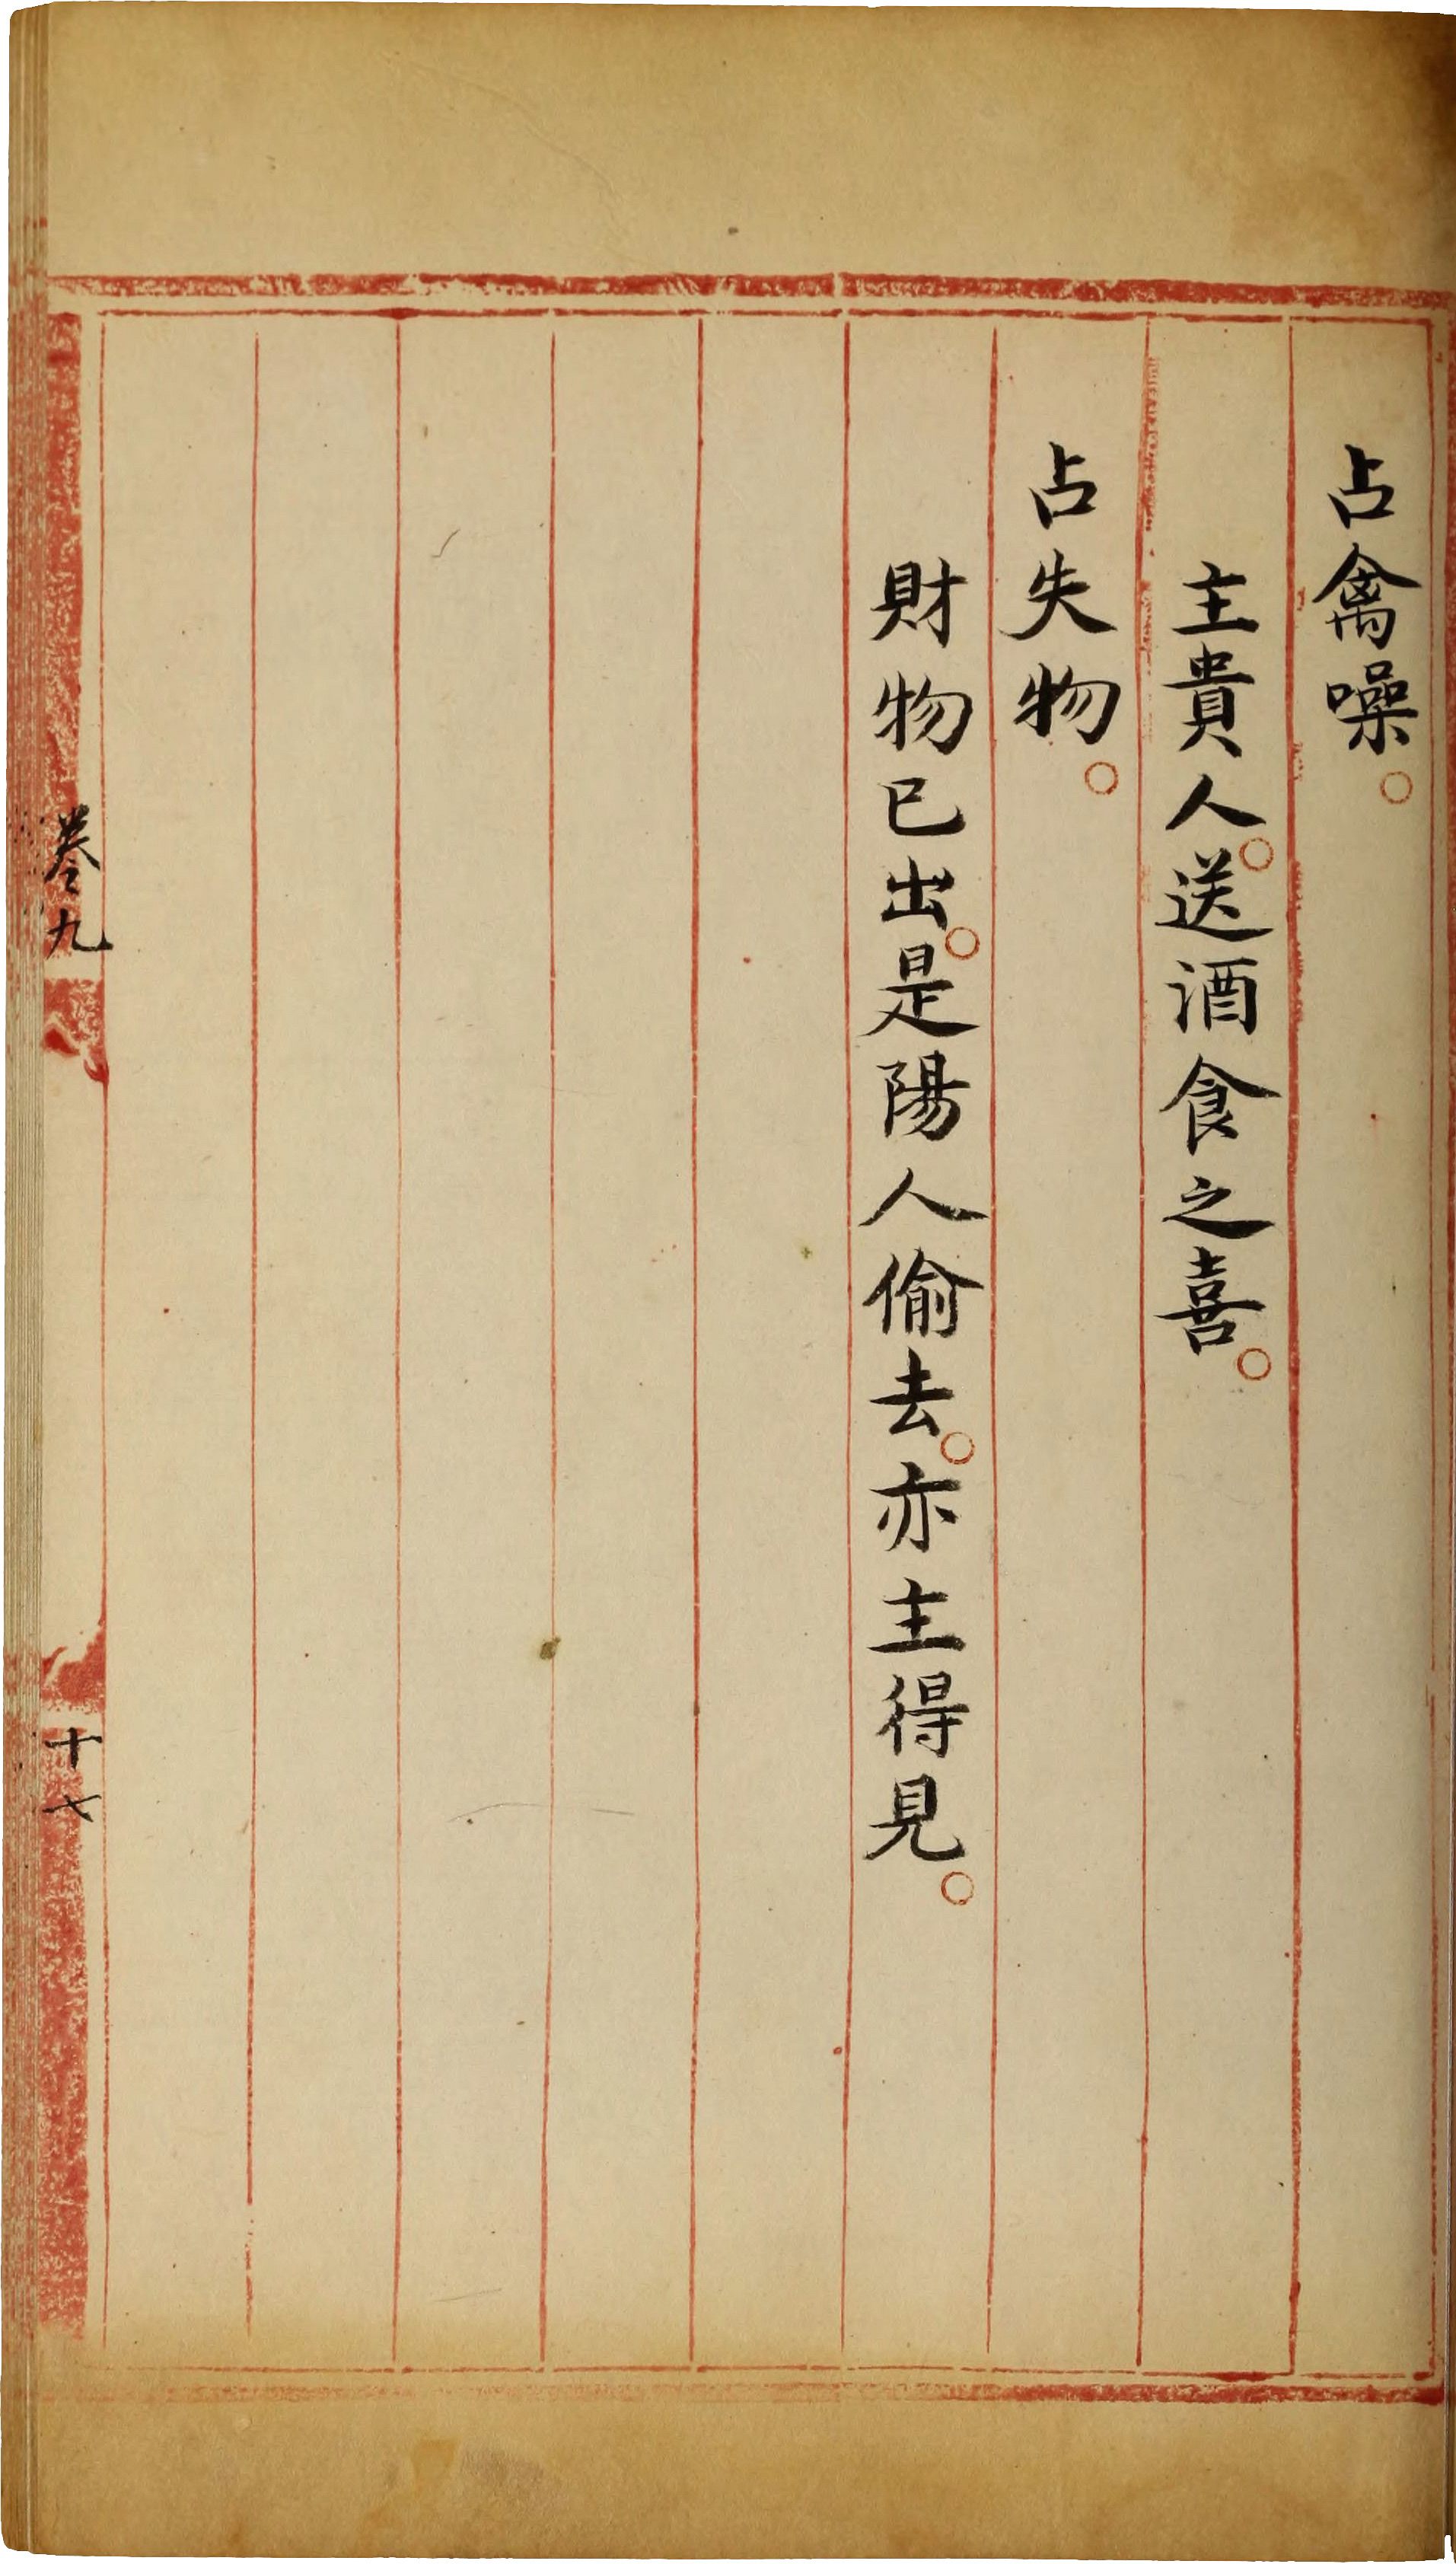 占禽噪。
主貴人。送酒食之喜。
占失物。
財物已出。是陽人偷去。亦主得見。
卷九
十七